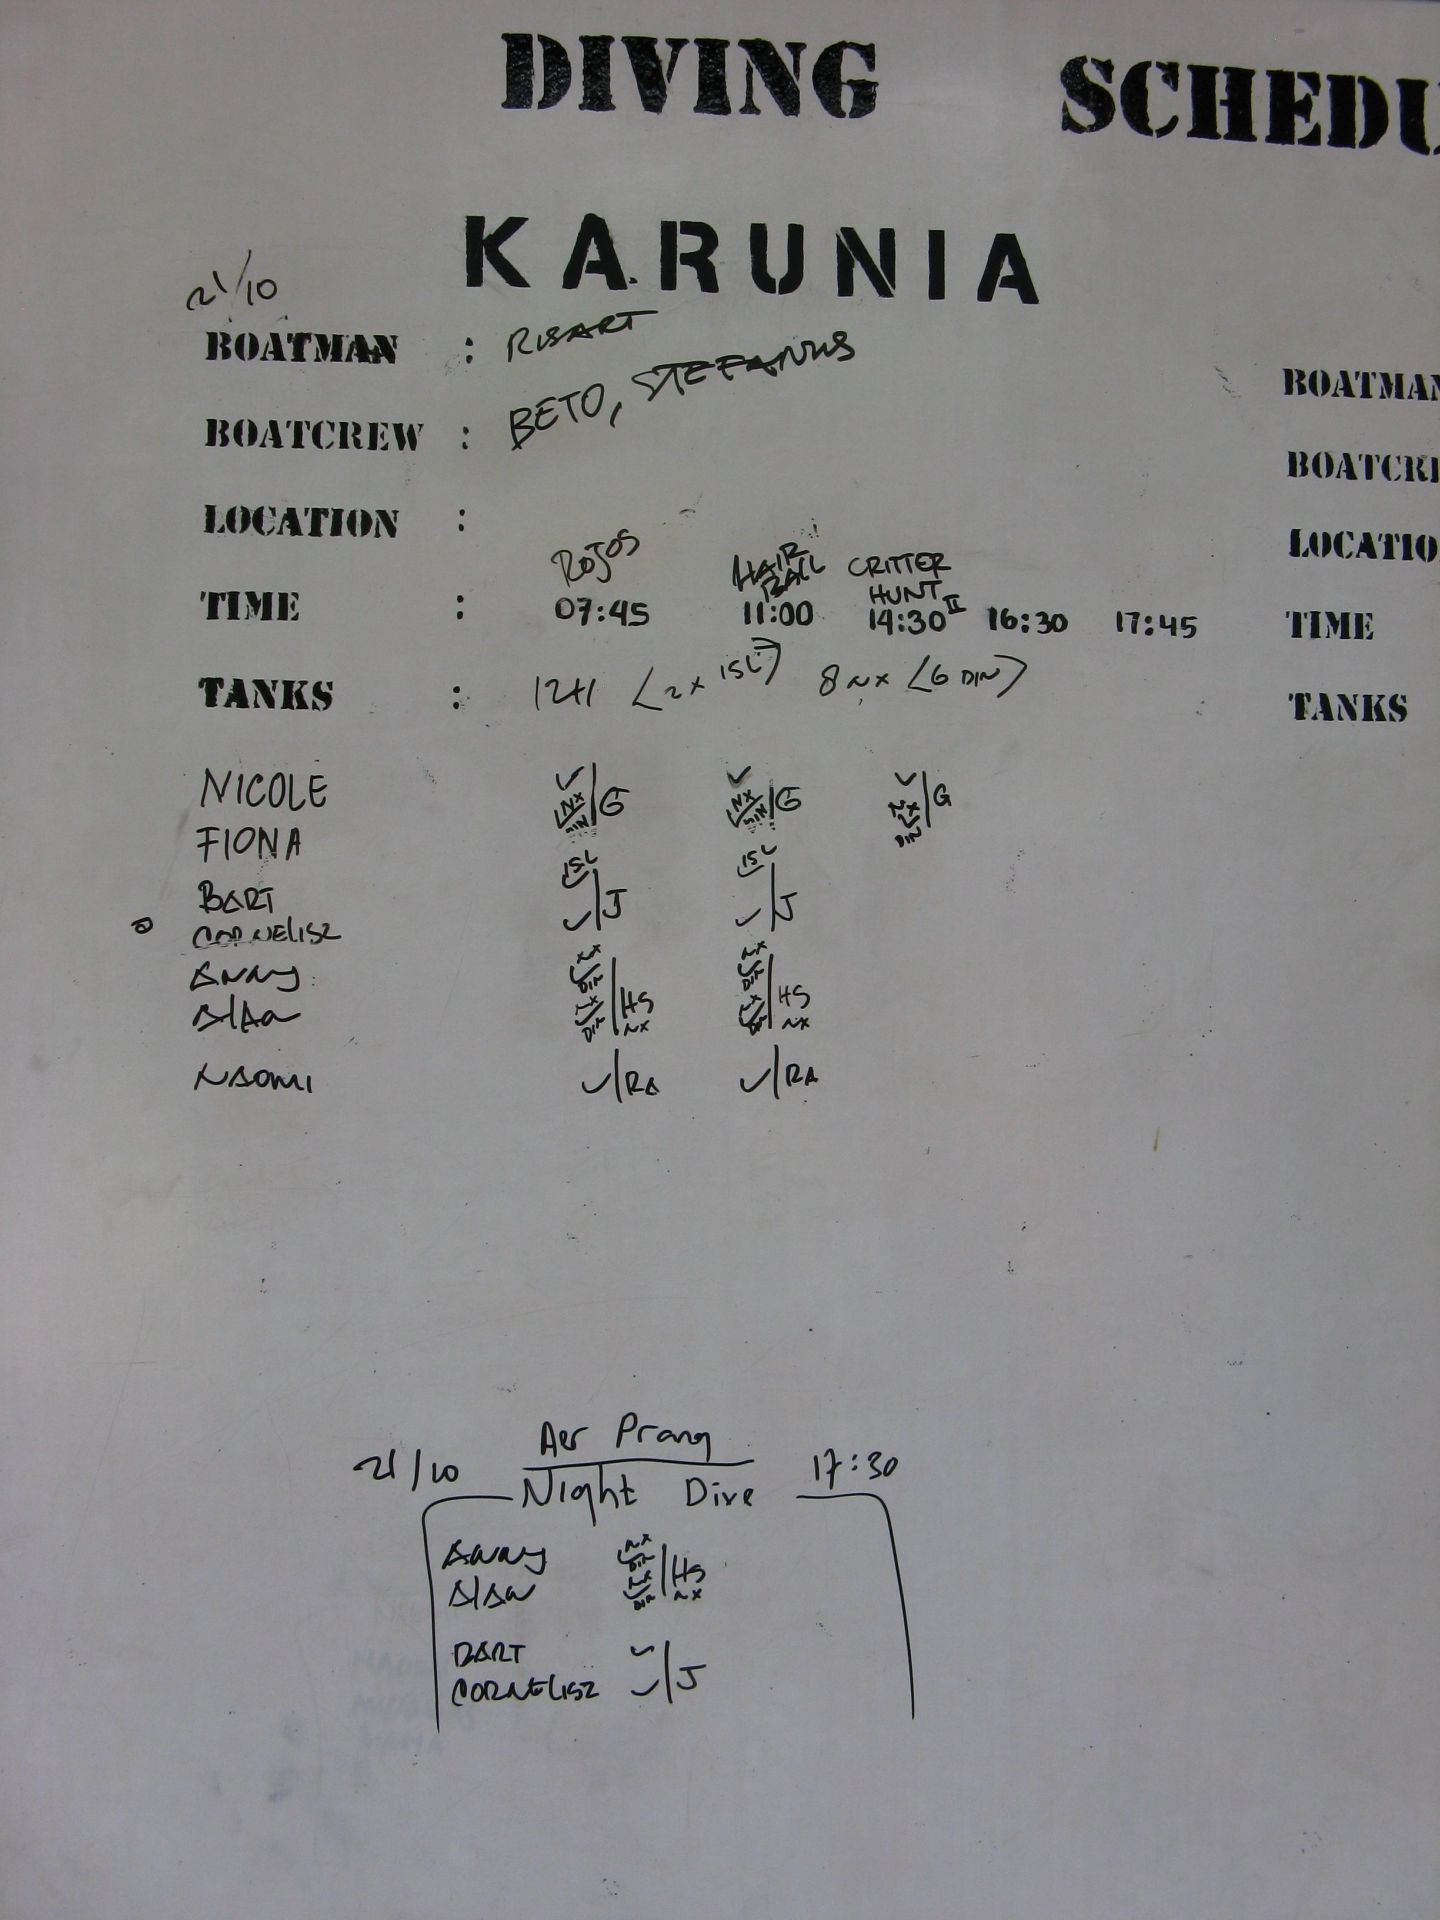 DIVING SCHEDU
KARUNIA
21/10
BOATMAN : RISART
BOATCREW : BETO, STEFANUS
LOCATION :
ROJOS HAIR BALL CRITTER HUNT II
TIME : 07:45 11:00 14:30 16:30 17:45
TANKS : 12+1 (2x 15L) 8 NX (6 DIN)
NICOLE ✓ NX DIN / G ✓ NX DIN / G ✓ NX DIN / G
FIONA
BART 15L ✓ / J 15L ✓ / J
CORNELISZ ✓ ✓
ANNY NX ✓ DIN / HS NX ✓ DIN / HS
ALAN NX ✓ DIN NX NX ✓ DIN NX
NAOMI ✓/RA ✓/RA
BOATMAN
BOATCRE
LOCATIO
TIME
TANKS
Aer Prang
21/10 Night Dive 17:30
ANNY NX ✓ DIN / HS
ALAN NX ✓ DIN NX
BART ✓ / J
CORNELISZ ✓